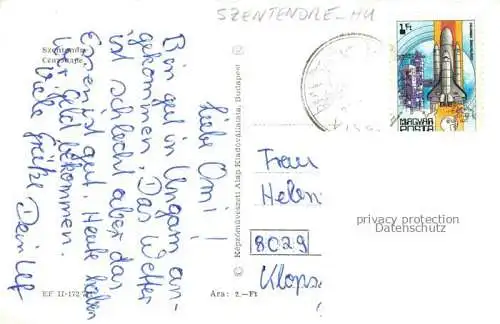 SZENTENDRE-HU
Szentendre
Liebe Omi!
Bin gut in Ungarn an-
gekommen. Das Wetter
ist schlecht aber das
Essen ist gut. Heute haben
wir Geld bekommen.
Viele Grüße Dein Ulf
KF II-172
Ára: 2.–Ft
© Képzőművészeti Alap Kiadóvállalata, Budapest
1 Ft
MAGYAR
POSTA
Frau
Helen
privacy protection
Datenschutz
8029
Klops